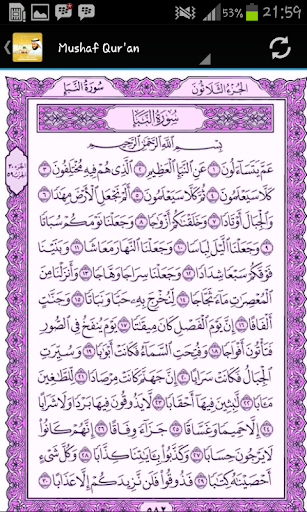 53% 21:59
Mushaf Qur'an
سُورَةُ النَّبَإِ الجُزْءُ الثَّلَاثُونَ
سُورَةُ النَّبَإِ
بِسْمِ اللَّهِ الرَّحْمَٰنِ الرَّحِيمِ
عَمَّ يَتَسَاءَلُونَ ١ عَنِ النَّبَإِ الْعَظِيمِ ٢ الَّذِي هُمْ فِيهِ مُخْتَلِفُونَ ٣
كَلَّا سَيَعْلَمُونَ ٤ ثُمَّ كَلَّا سَيَعْلَمُونَ ٥ أَلَمْ نَجْعَلِ الْأَرْضَ مِهَادًا ٦
وَالْجِبَالَ أَوْتَادًا ٧ وَخَلَقْنَاكُمْ أَزْوَاجًا ٨ وَجَعَلْنَا نَوْمَكُمْ سُبَاتًا
٩ وَجَعَلْنَا اللَّيْلَ لِبَاسًا ١٠ وَجَعَلْنَا النَّهَارَ مَعَاشًا ١١ وَبَنَيْنَا
فَوْقَكُمْ سَبْعًا شِدَادًا ١٢ وَجَعَلْنَا سِرَاجًا وَهَّاجًا ١٣ وَأَنْزَلْنَا مِنَ
الْمُعْصِرَاتِ مَاءً ثَجَّاجًا ١٤ لِنُخْرِجَ بِهِ حَبًّا وَنَبَاتًا ١٥ وَجَنَّاتٍ
أَلْفَافًا ١٦ إِنَّ يَوْمَ الْفَصْلِ كَانَ مِيقَاتًا ١٧ يَوْمَ يُنْفَخُ فِي الصُّورِ
فَتَأْتُونَ أَفْوَاجًا ١٨ وَفُتِحَتِ السَّمَاءُ فَكَانَتْ أَبْوَابًا ١٩ وَسُيِّرَتِ
الْجِبَالُ فَكَانَتْ سَرَابًا ٢٠ إِنَّ جَهَنَّمَ كَانَتْ مِرْصَادًا ٢١ لِلطَّاغِينَ
مَآبًا ٢٢ لَابِثِينَ فِيهَا أَحْقَابًا ٢٣ لَا يَذُوقُونَ فِيهَا بَرْدًا وَلَا شَرَابًا
٢٤ إِلَّا حَمِيمًا وَغَسَّاقًا ٢٥ جَزَاءً وِفَاقًا ٢٦ إِنَّهُمْ كَانُوا
لَا يَرْجُونَ حِسَابًا ٢٧ وَكَذَّبُوا بِآيَاتِنَا كِذَّابًا ٢٨ وَكُلَّ شَيْءٍ
أَحْصَيْنَاهُ كِتَابًا ٢٩ فَذُوقُوا فَلَنْ نَزِيدَكُمْ إِلَّا عَذَابًا ٣٠
٥٨٢